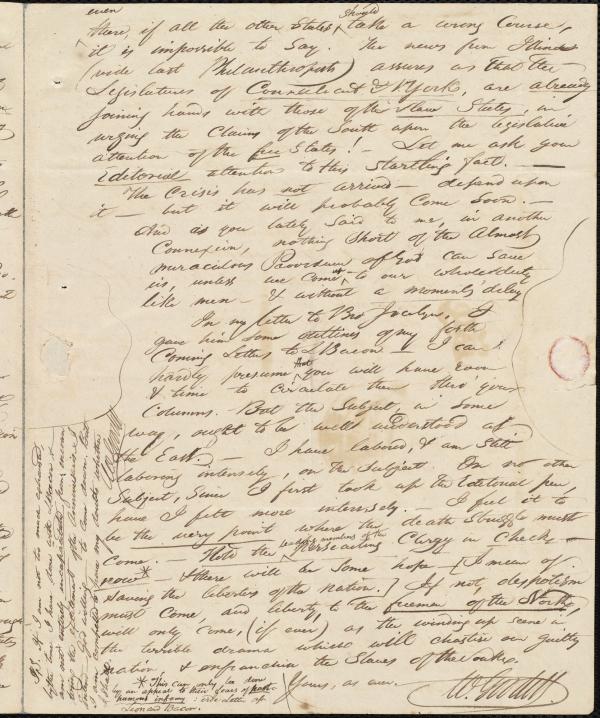 even should
there, if all the other States take a wrong course,
it is impossible to say. The news from Illinois
(vide last Philanthropist) assures us that the
Legislatures of Connecticut & N York, are already
joining hands with those of the slave States, in
urging the claims of the South upon the legislative
attention of the free States! - Let me ask your
editorial attention to this startling fact. -
The Crisis has not arrived - depend upon
it - but it will probably come soon. -
And as you lately said to me, in another
Connexion, nothing short of the Almost
miraculous Providence of God can save
us, unless we come up to our whole duty
like men - & without a moments' delay
In my letter to Bro Jocelyn, I
gave him some outlines of my forth
Coming Letters to L Bacon - I can
hardly presume that you will have room
& time to circulate them thro your
Columns. But the Subject, in some
way, ought to be well understood at
the East. - I have labored, & am still
laboring intensely, on the Subject. On no other
Subject, since I first took up the Editorial pen,
have I felt more intensely. - I feel it to
be the very point where the death struggle must
come. - Hold the leading members of the Persecuting Clergy in Check -
now* - & there will be some hope - [I mean of
saving the liberties of the nation.] If not, despotism
must come, and liberty, to the freemen of the North,
will only come, (if ever) as the winding up scene in
the terrible drama which will chastise our guilty
nation, & emancipate the Slaves of the South.
Yours, as ever.
Wm Goodell
* This can only be done
by an appeal to their fears of post-
humous infamy: vide Letter of
Leonard Bacon.
P.S. If I am not too much exhausted,
by the time I have done with Bacon &